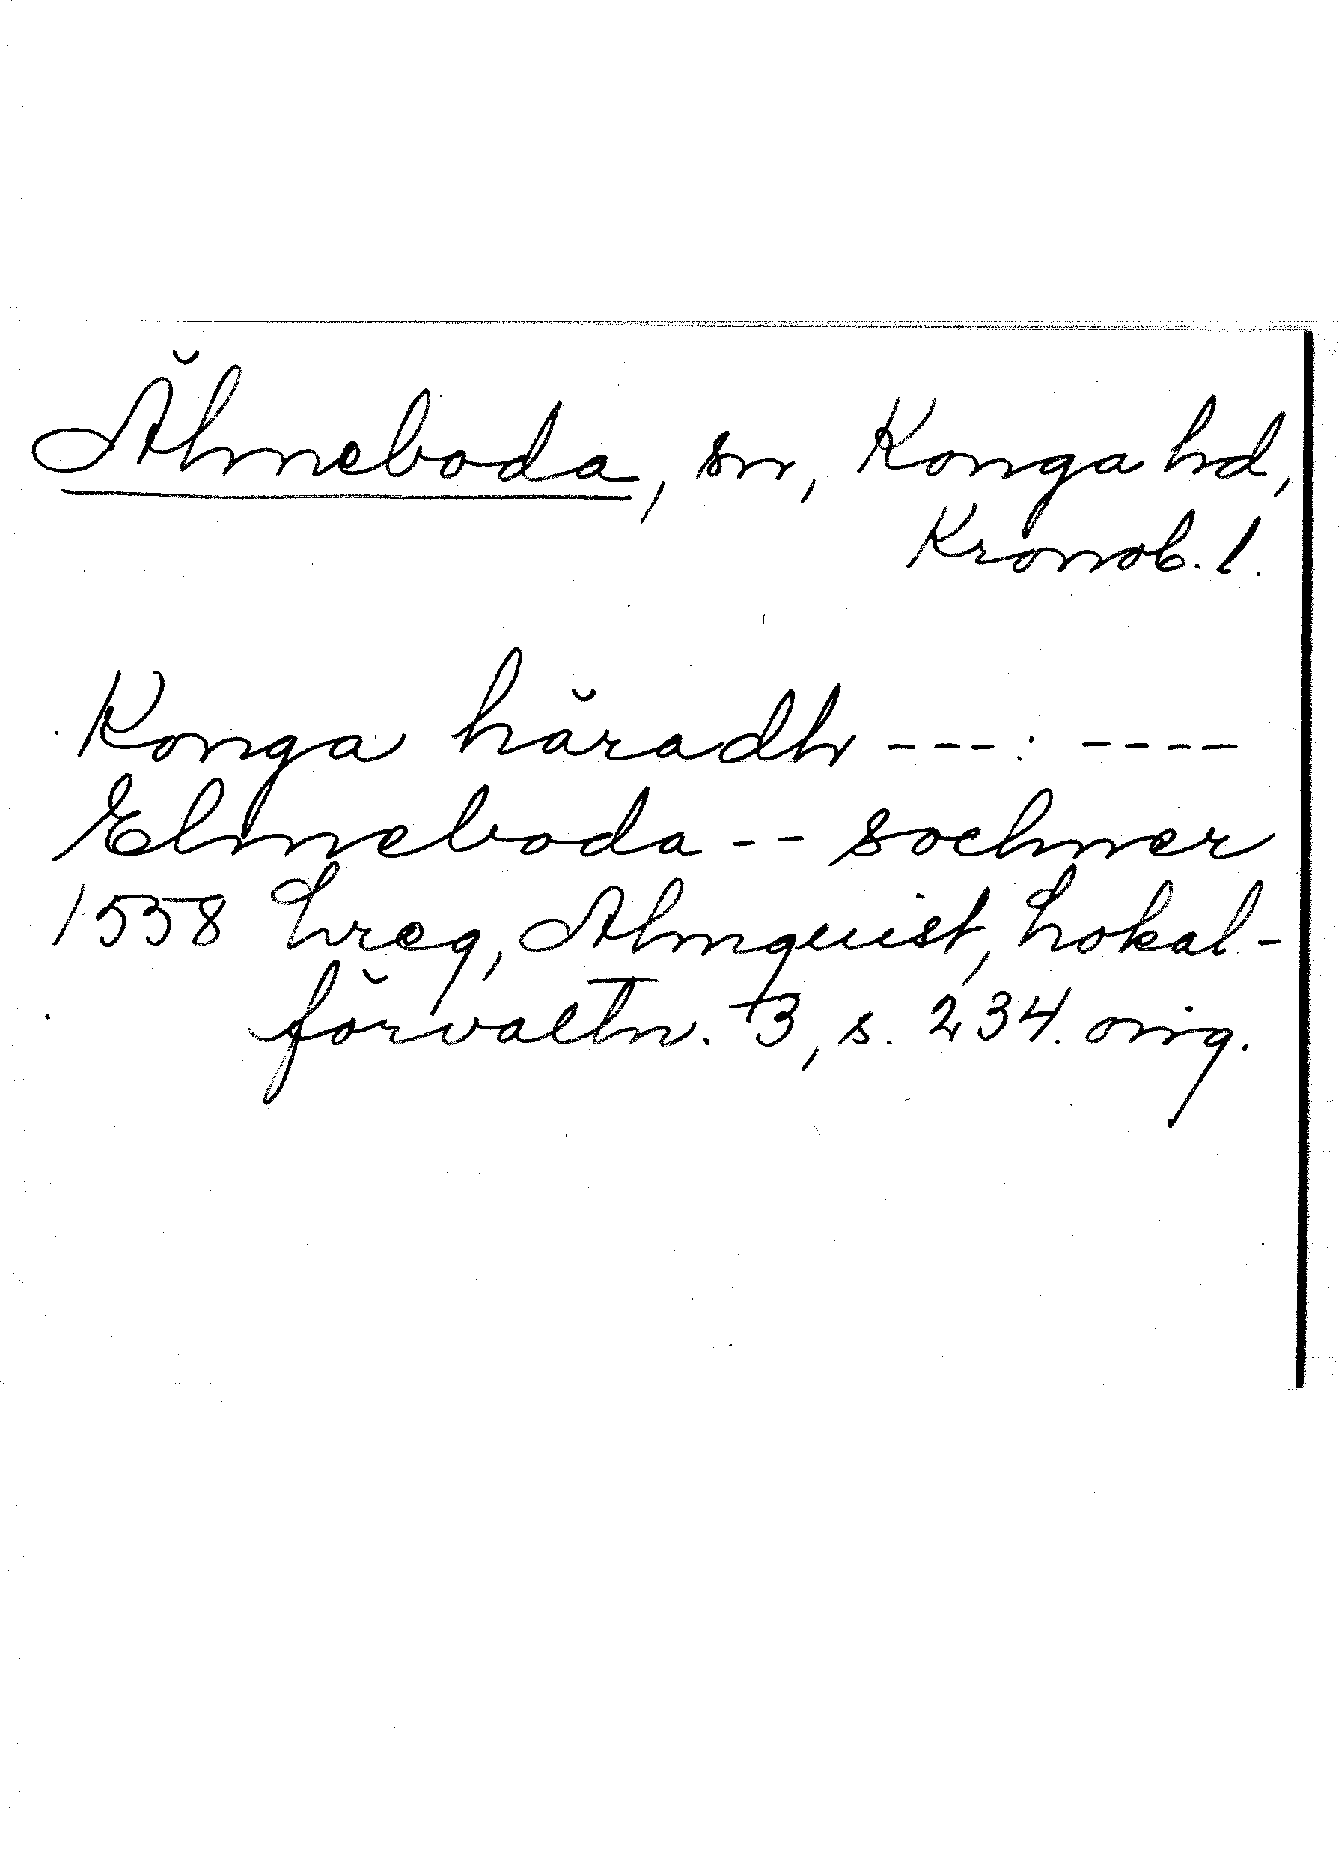 Älmeboda, sn, Konga hd,
Kronob. l.
Konga häradh ---: ----
Elmeboda -- sochner
1558 Lreg, Almquist, Lokal-
förvaltn. 3, s. 234. orig.